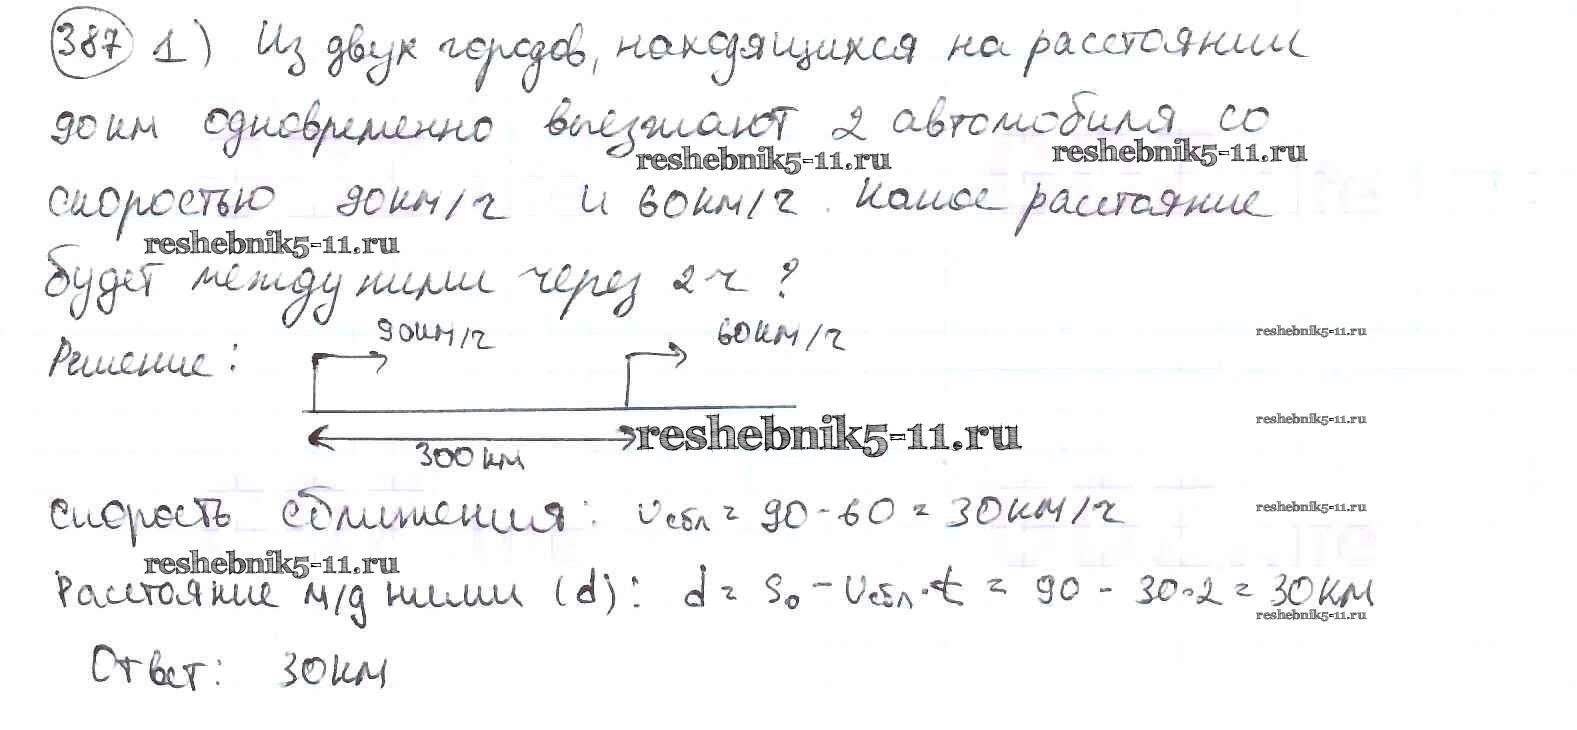 387 1) Из двух городов, находящихся на расстоянии
90км одновременно выезжают 2 автомобиля со
reshebnik5-11.ru reshebnik5-11.ru
скоростью 90км/ч и 60км/ч. Какое расстояние
reshebnik5-11.ru
будет между ними через 2ч?
90км/ч 60км/ч
reshebnik5-11.ru
Решение:
reshebnik5-11.ru
reshebnik5-11.ru
300км
скорость сближения: Vсбл = 90-60 = 30км/ч
reshebnik5-11.ru
reshebnik5-11.ru
Расстояние м/д ними (d): d = S₀ - Vсбл·t = 90 - 30·2 = 30км
reshebnik5-11.ru
Ответ: 30км